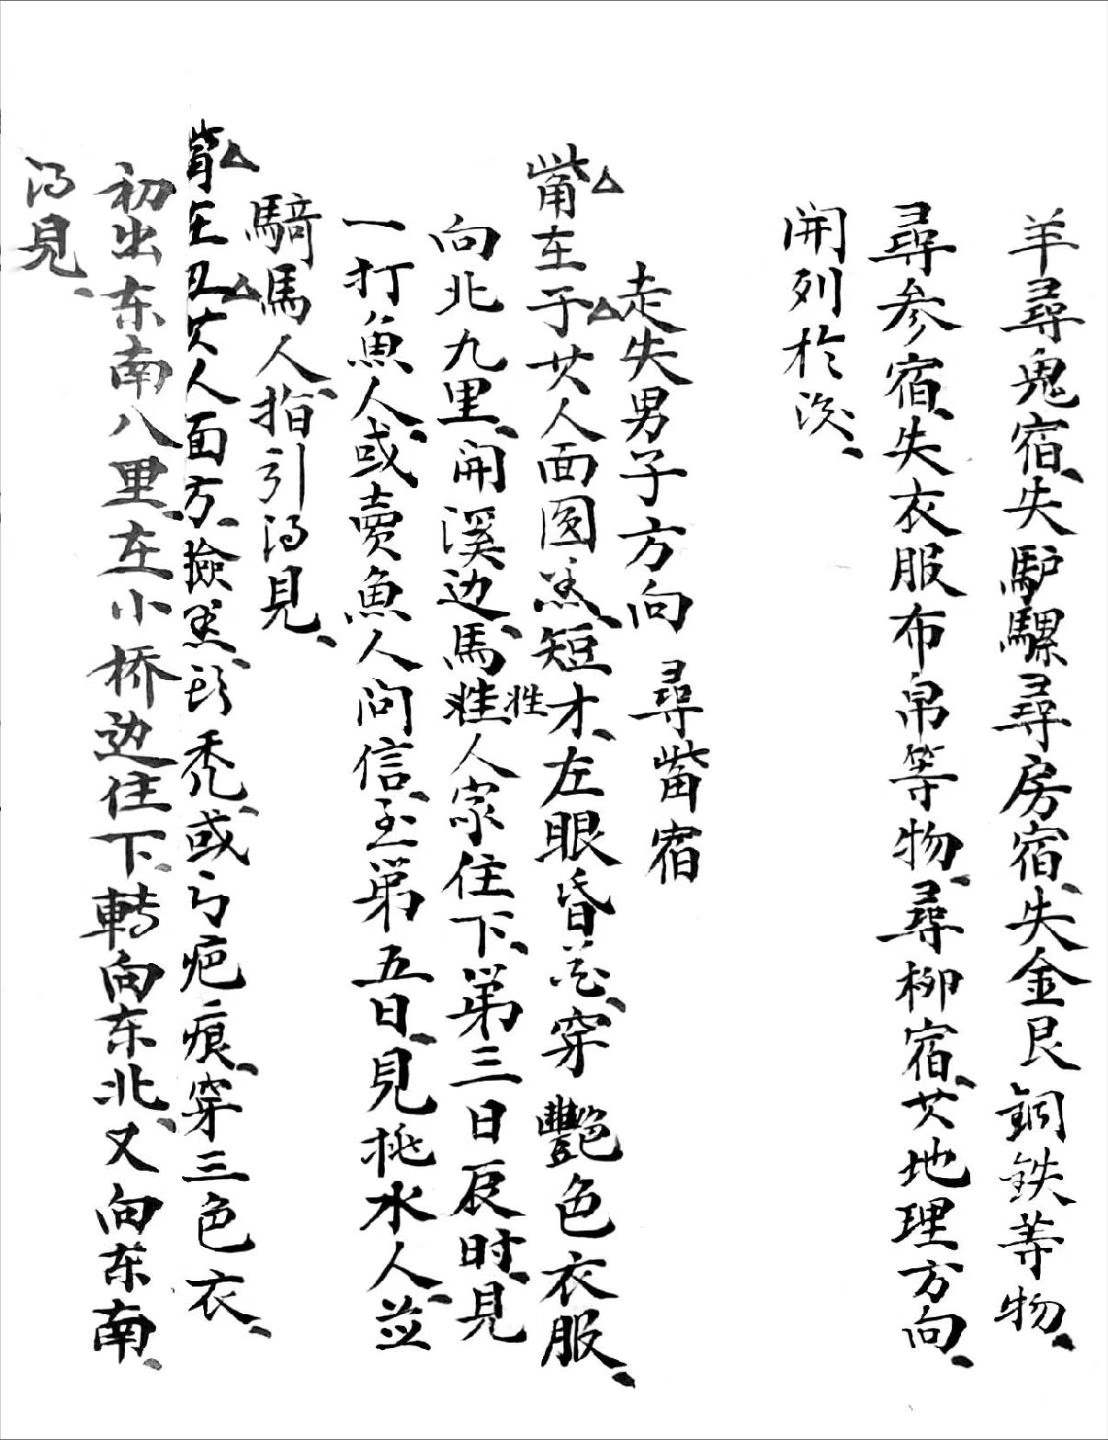 羊尋鬼宿、失馿騾尋房宿、失金艮銅鉄等物、
尋参宿、失衣服布帛等物、尋柳宿、其地理方向、
開列於後、
走失男子方向 尋觜宿
觜在子其人面圆羔短才、左眼昏花、穿艷色衣服、
向北九里、開溪边、馬姓姓人家住下、第三日辰时、見
一打魚人、或賣魚人问信、至第五日、見挑水人、並
騎馬人、指引得見、
觜在丑其人面方、臉羔、头秃、或有疤痕、穿三色衣、
初出东南八里、在小桥边住下、轉向东北、又向东南、
得見、